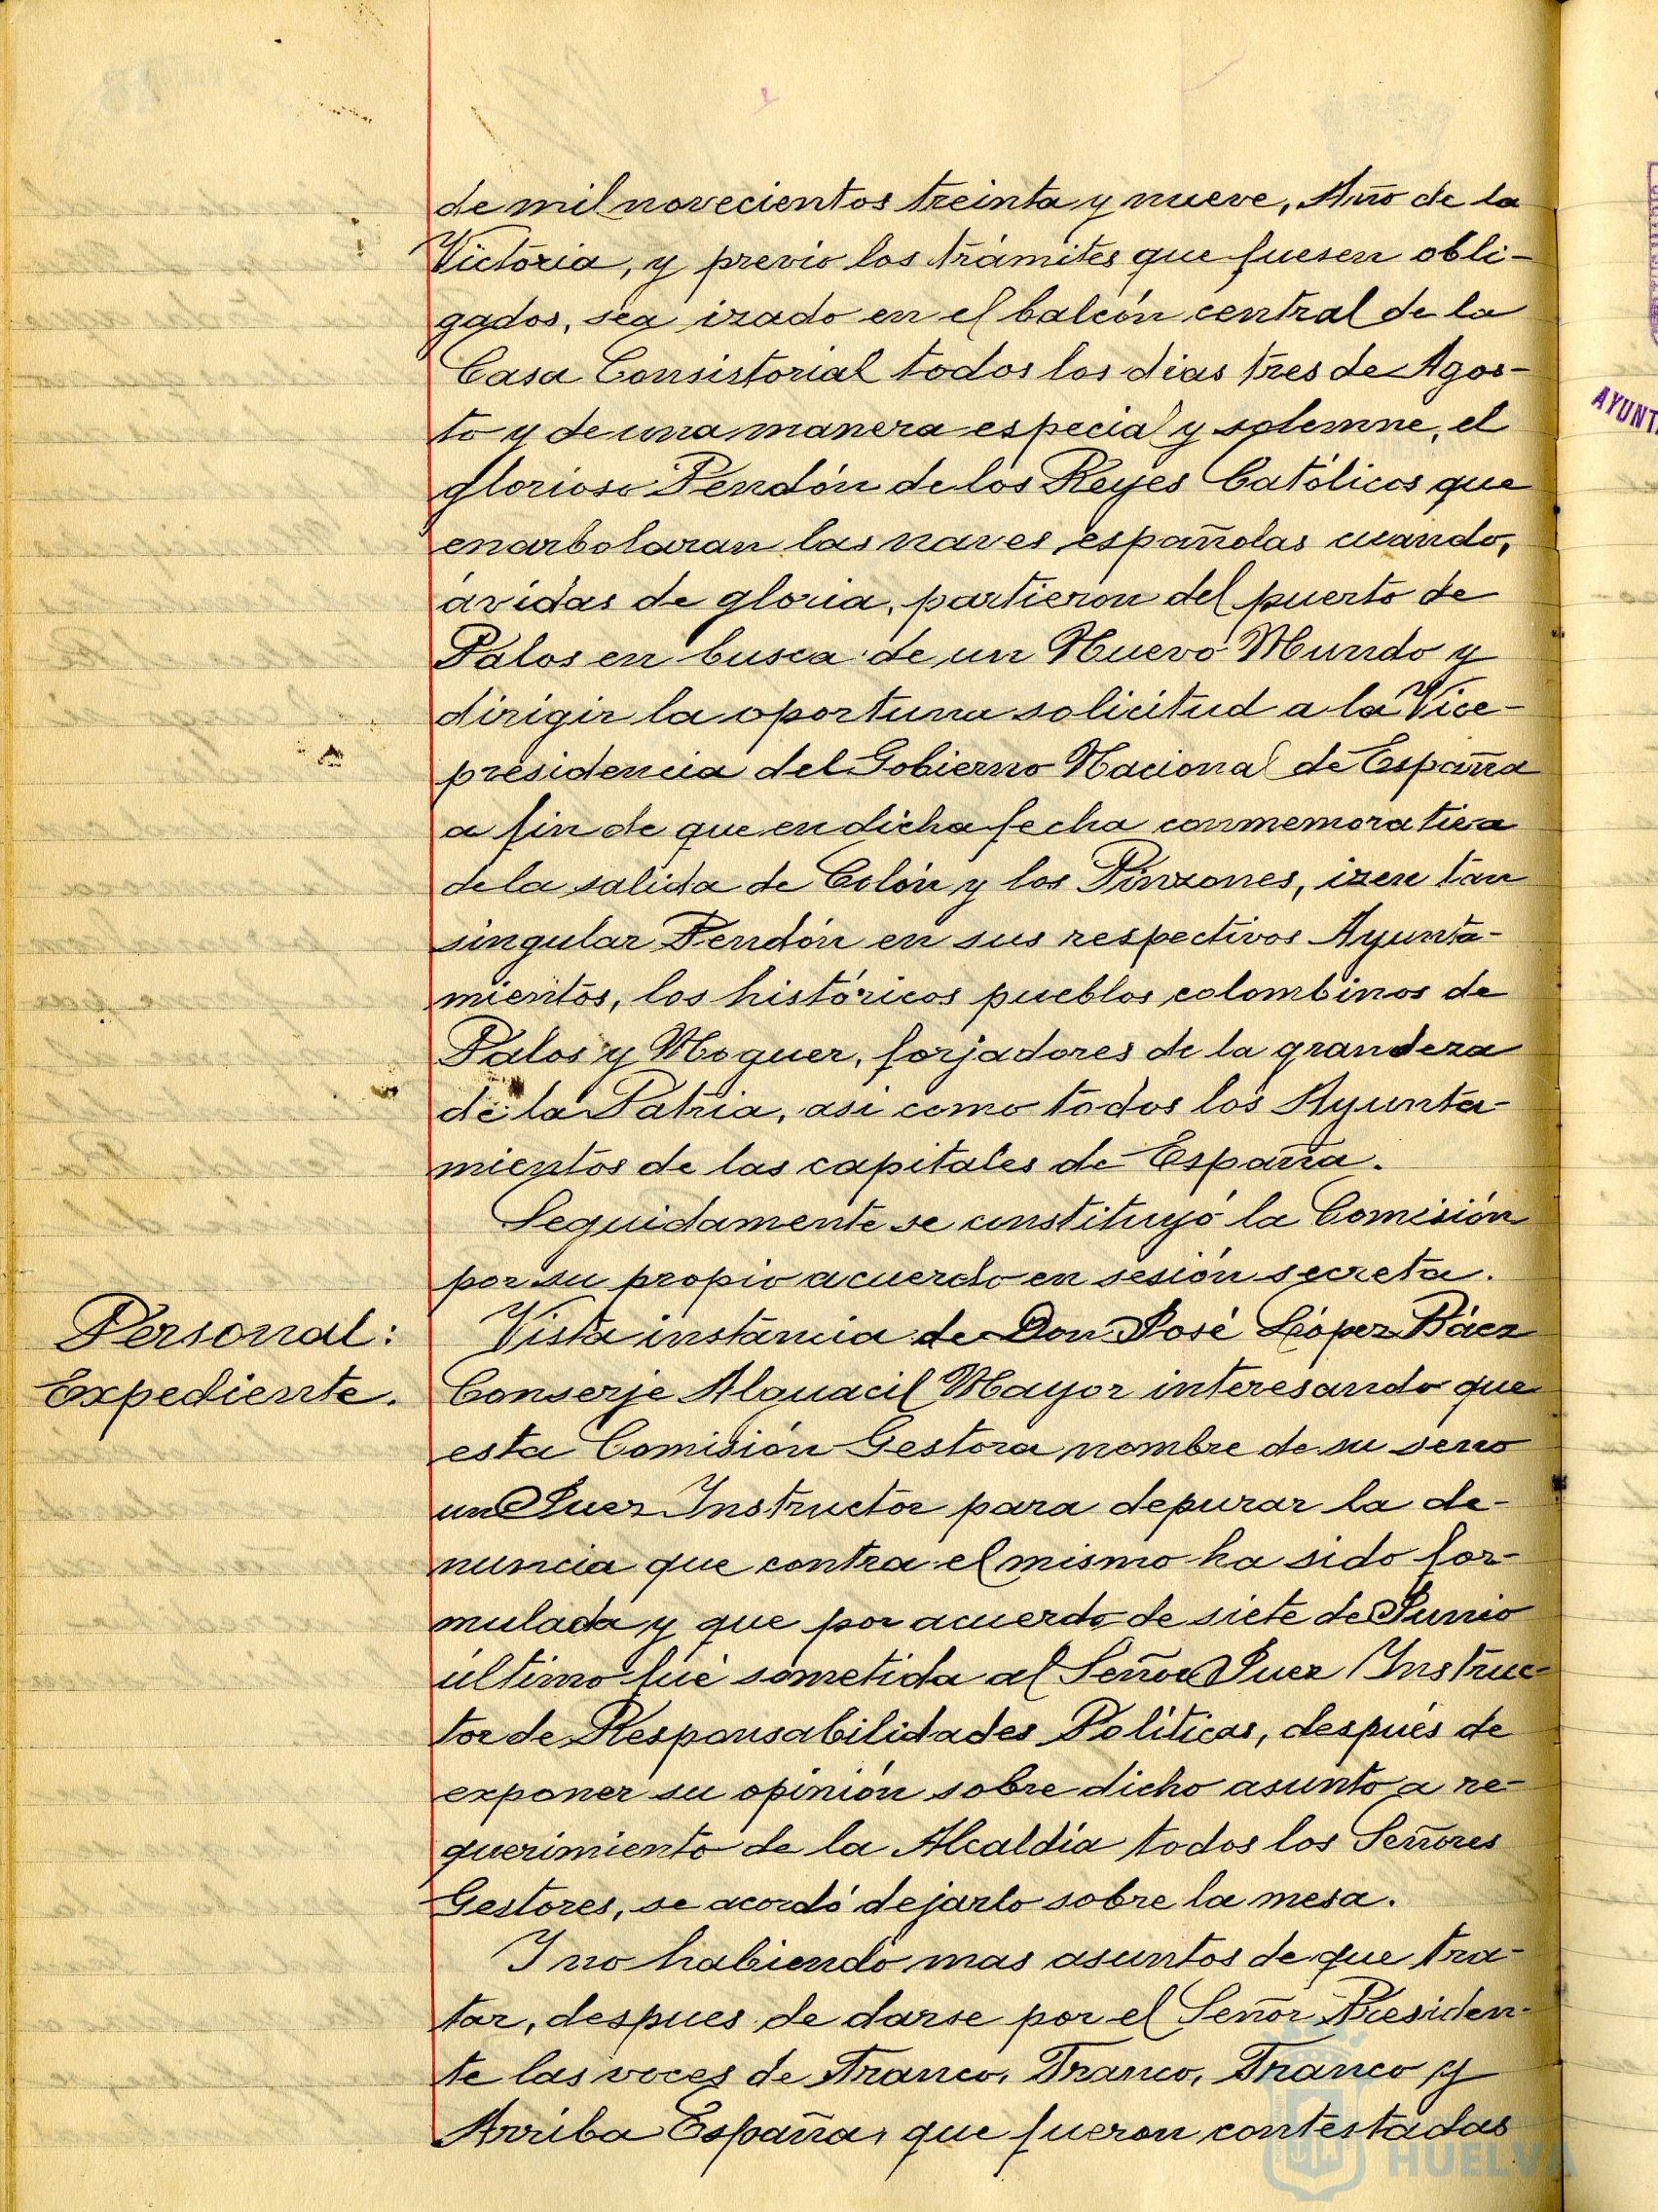 de mil novecientos treinta y nueve, Año de la
Victoria, y previo los trámites que fuesen obli-
gados, sea izado en el balcón central de la
Casa Consistorial todos los dias tres de Agos-
to y de una manera especial y solemne, el
glorioso Pendón de los Reyes Católicos que
enarbolaran las naves españolas cuando,
ávidas de gloria, partieron del puerto de
Palos en busca de un Nuevo Mundo y
dirigir la oportuna solicitud a la Vice-
presidencia del Gobierno Nacional de España
a fin de que en dicha fecha conmemorativa
de la salida de Colón y los Pinzones, izen tan
singular Pendón en sus respectivos Ayunta-
mientos, los históricos pueblos colombinos de
Palos y Moguer, forjadores de la grandeza
de la Patria, asi como todos los Ayunta-
mientos de las capitales de España.
Seguidamente se constituyó la Comisión
por su propio acuerdo en sesión secreta.
Personal:
Expediente.
Vista instancia de Don José López Báez
Conserje Alguacil Mayor interesando que
esta Comisión Gestora nombre de su seno
un Juez Instructor para depurar la de-
nuncia que contra el mismo ha sido for-
mulada y que por acuerdo de siete de Junio
último fué sometida al Señor Juez Instruc-
tor de Responsabilidades Políticas, después de
exponer su opinión sobre dicho asunto a re-
querimiento de la Alcaldía todos los Señores
Gestores, se acordó dejarlo sobre la mesa.
Y no habiendo mas asuntos de que tra-
tar, despues de darse por el Señor Presiden-
te las voces de Franco, Franco, Franco y
Arriba España, que fueron contestadas
HUELVA